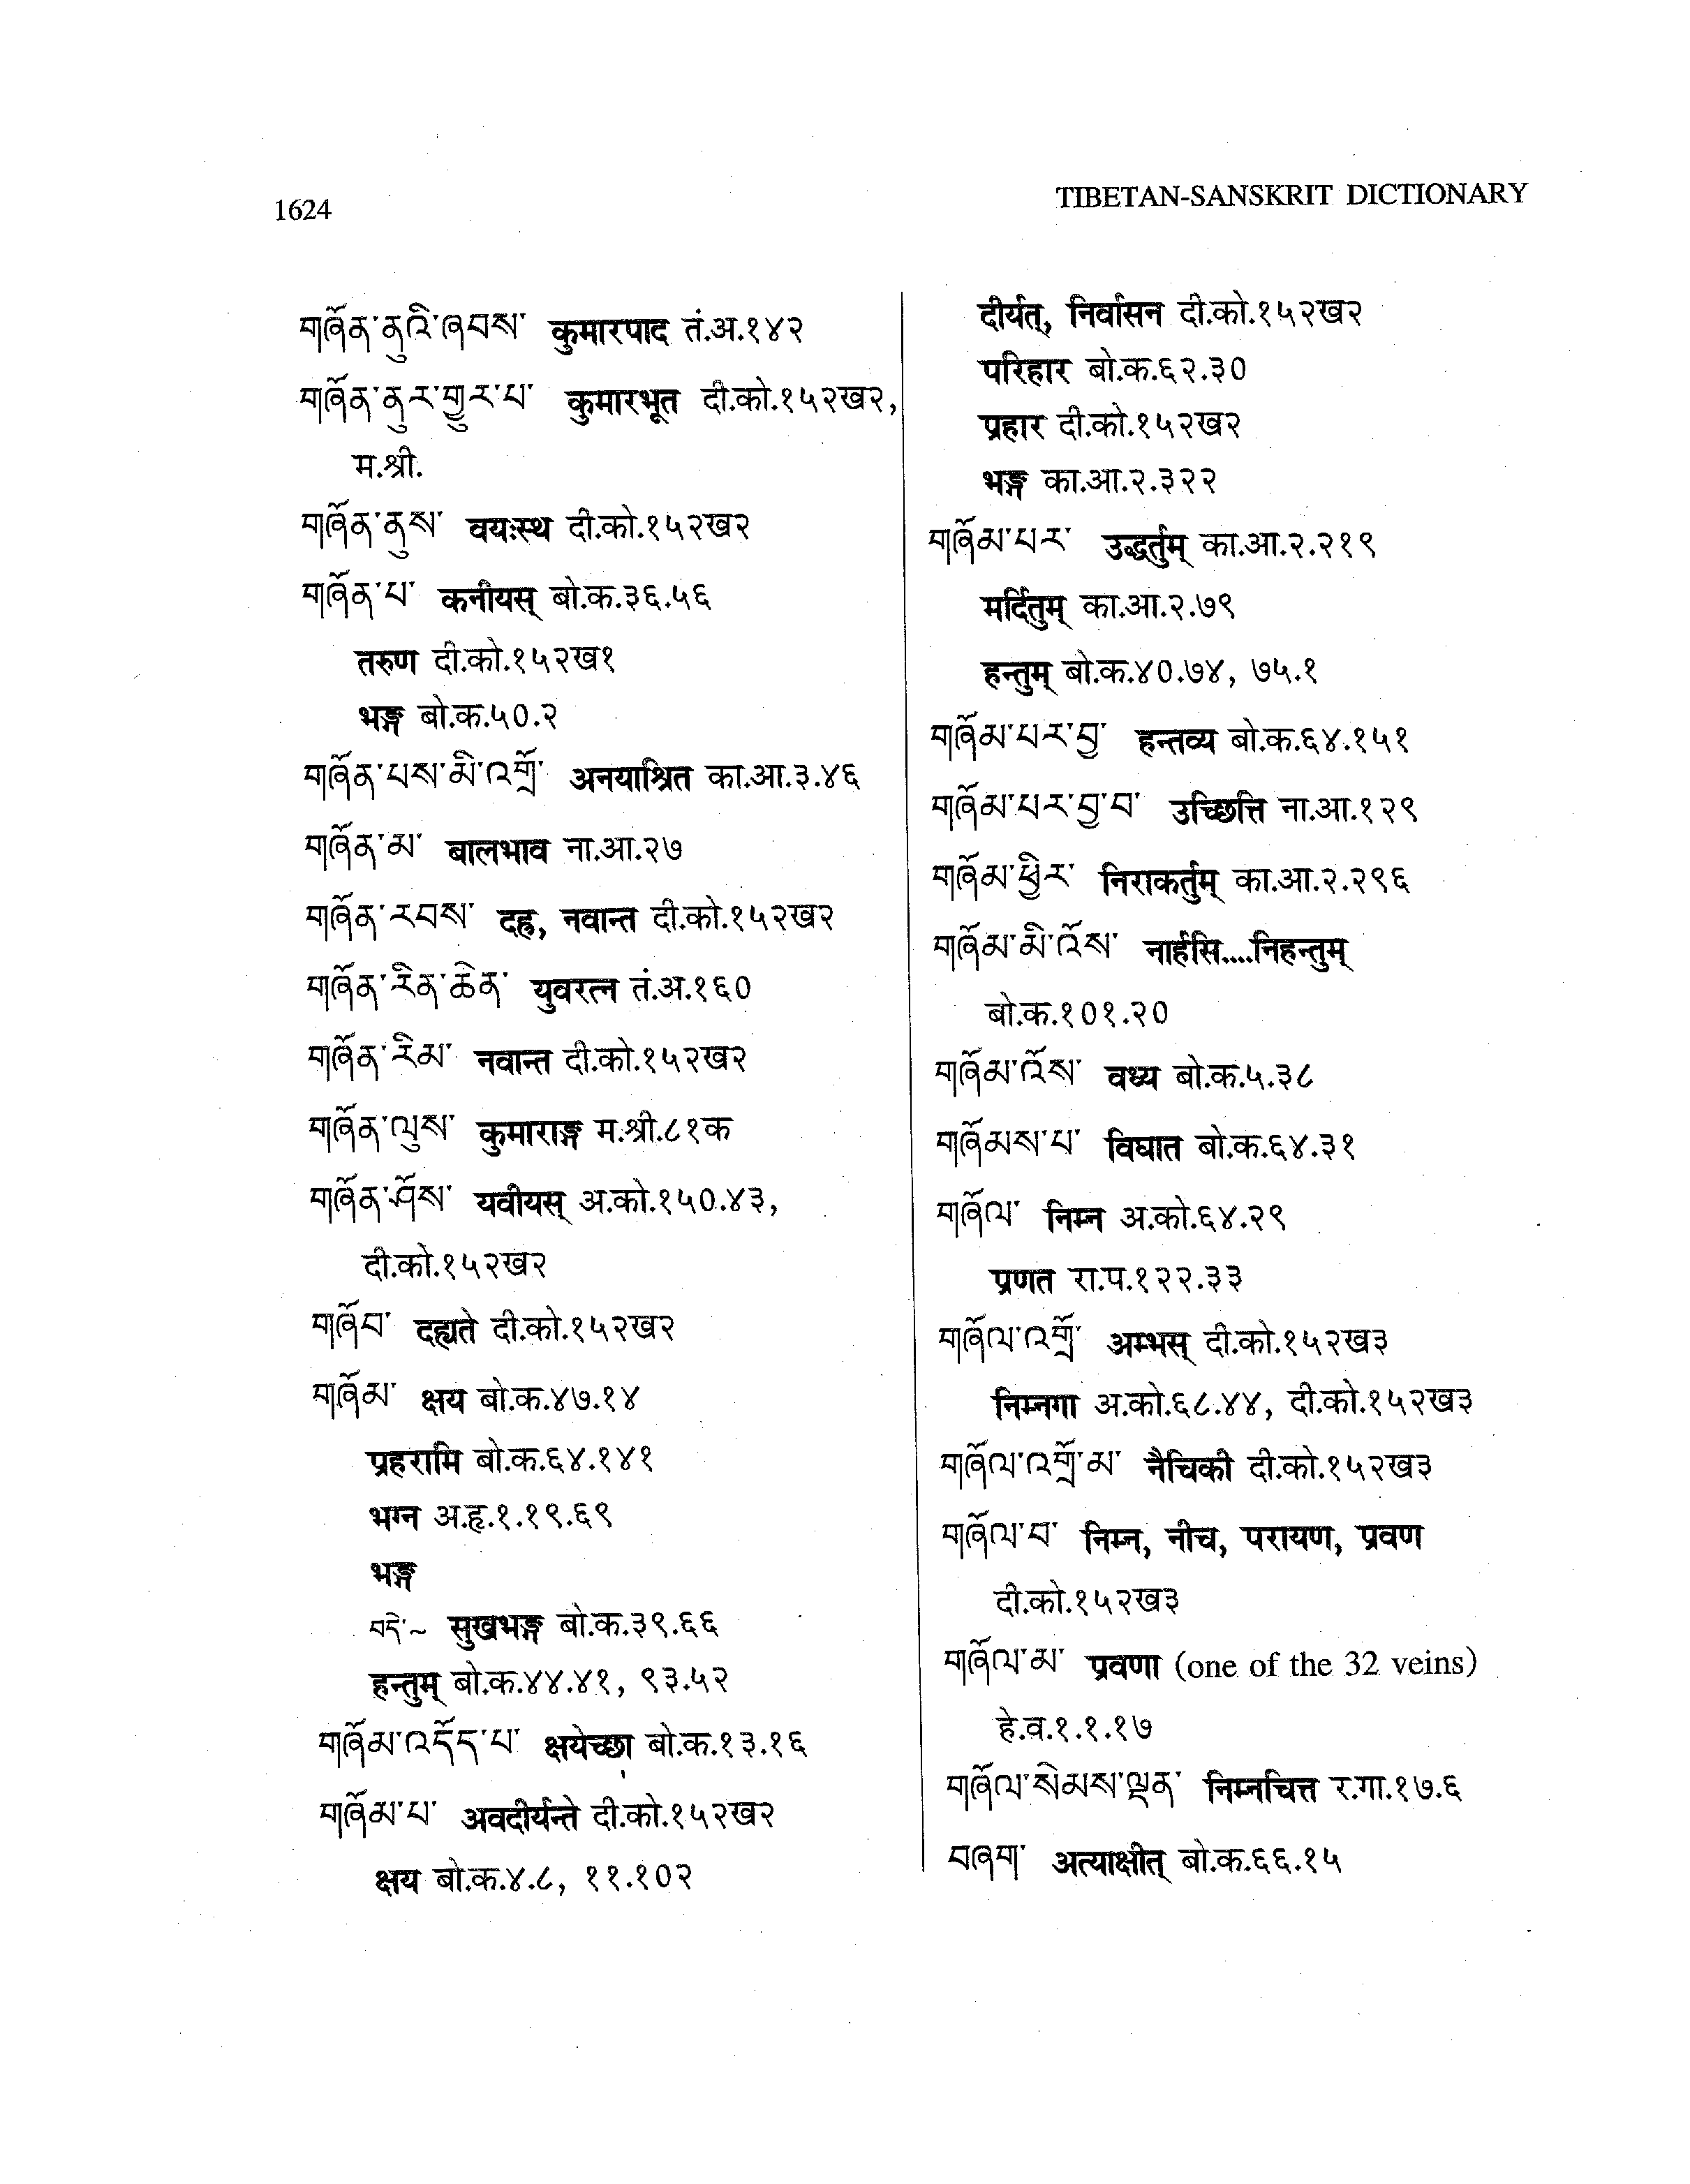 1624
TIBETAN-SANSKRIT DICTIONARY
གཞོན་ནུའི་ཞབས་ कुमारपाद तं.अ.१४२
གཞོན་ནུར་གྱུར་པ་ कुमारभूत दी.को.१५२ख२,
म.श्री.
གཞོན་ནུས་ वयःस्थ दी.को.१५२ख२
གཞོན་པ་ कनीयस् बो.क.३६.५६
तरुण दी.को.१५२ख१
भङ्ग बो.क.५0.२
གཞོན་པས་མི་འགྲོ་ अनयाश्रित का.आ.३.४६
གཞོན་མ་ बालभाव ना.आ.२७
གཞོན་རབས་ दह्र, नवान्त दी.को.१५२ख२
གཞོན་རིན་ཆེན་ युवरत्न तं.अ.१६0
གཞོན་རིམ་ नवान्त दी.को.१५२ख२
གཞོན་ལུས་ कुमाराङ्ग म.श्री.८१क
གཞོན་ཤོས་ यवीयस् अ.को.१५0.४३,
दी.को.१५२ख२
གཞོབ་ दह्यते दी.को.१५२ख२
གཞོམ་ क्षय बो.क.४७.१४
प्रहरामि बो.क.६४.१४१
भग्न अ.हृ.१.१९.६९
भङ्ग
བདེ་~ सुखभङ्ग बो.क.३९.६६
हन्तुम् बो.क.४४.४१, ९३.५२
གཞོམ་འདོད་པ་ क्षयेच्छा बो.क.१३.१६
གཞོམ་པ་ अवदीर्यन्ते दी.को.१५२ख२
क्षय बो.क.४.८, ११.१0२
दीर्यत्, निर्वासन दी.को.१५२ख२
परिहार बो.क.६२.३0
प्रहार दी.को.१५२ख२
भङ्ग का.आ.२.३२२
གཞོམ་པར་ उद्धर्तुम् का.आ.२.२१९
मर्दितुम् का.आ.२.७९
हन्तुम् बो.क.४0.७४, ७५.१
གཞོམ་པར་བྱ་ हन्तव्य बो.क.६४.१५१
གཞོམ་པར་བྱ་བ་ उच्छित्ति ना.आ.१२९
གཞོམ་ཕྱིར་ निराकर्तुम् का.आ.२.२९६
གཞོམ་མི་འོས་ नार्हसि....निहन्तुम्
बो.क.१0१.२0
གཞོམ་འོས་ वध्य बो.क.५.३८
གཞོམས་པ་ विघात बो.क.६४.३१
གཞོལ་ निम्न अ.को.६४.२९
प्रणत रा.प.१२२.३३
གཞོལ་འགྲོ་ अम्भस् दी.को.१५२ख३
निम्नगा अ.को.६८.४४, दी.को.१५२ख३
གཞོལ་འགྲོ་མ་ नैचिकी दी.को.१५२ख३
གཞོལ་བ་ निम्न, नीच, परायण, प्रवण
दी.को.१५२ख३
གཞོལ་མ་ प्रवणा (one of the 32 veins)
हे.व.१.१.१७
གཞོལ་སེམས་ལྡན་ निम्नचित्त र.गा.१७.६
བཞག་ अत्याक्षीत् बो.क.६६.१५